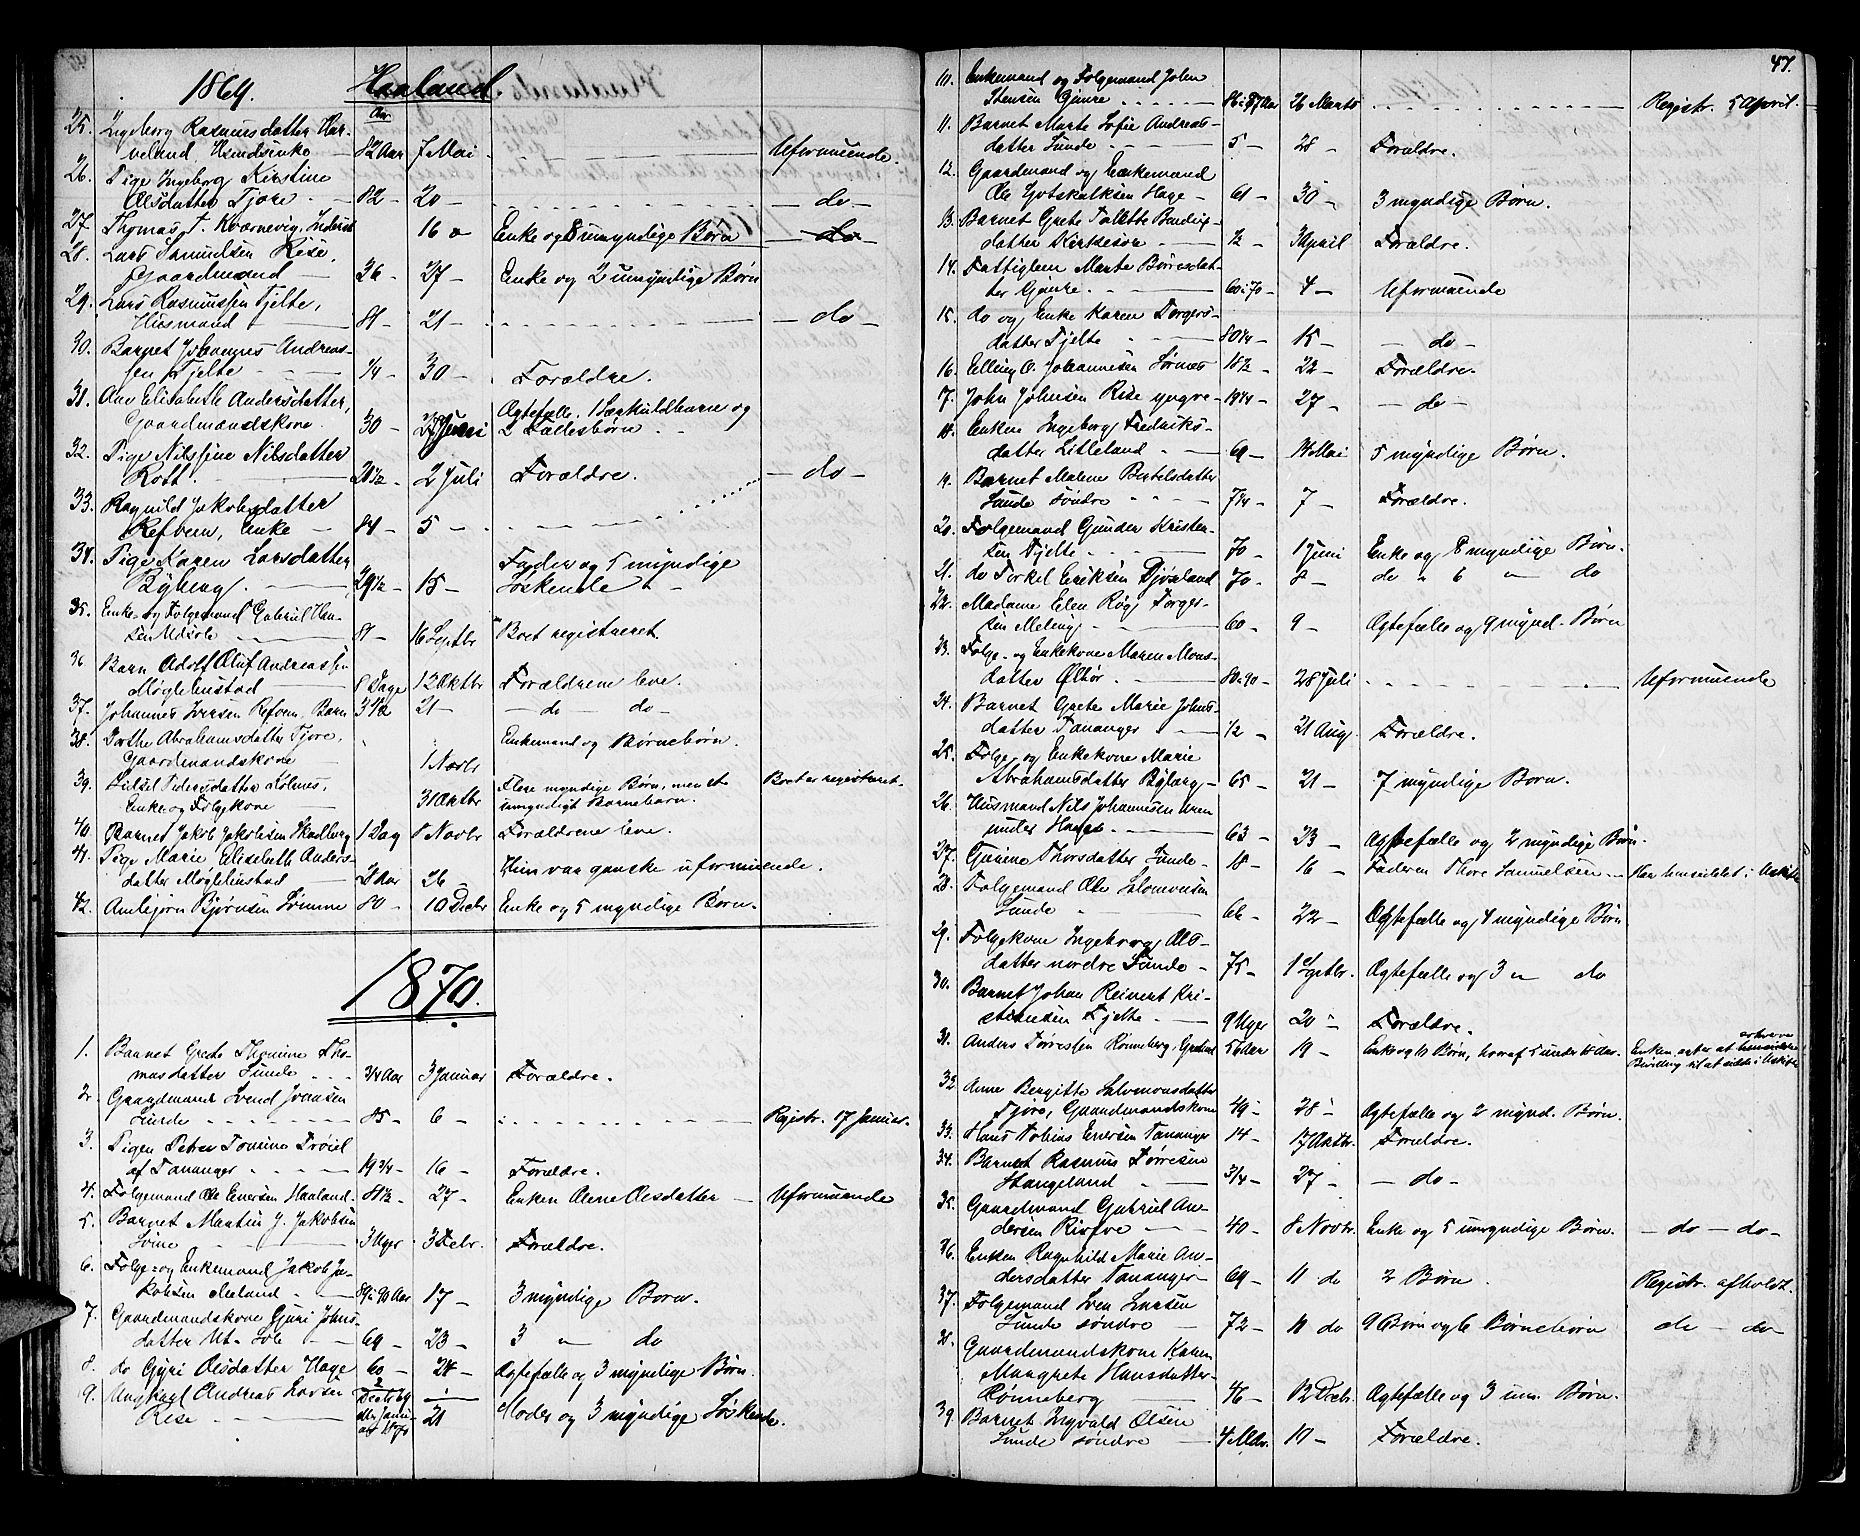 1869. Haaland.
Aar
25. Ingeborg Rasmusdatter Har-
veland, Huusmdsenke — 82 Aar 7 Mai Uformuende.
26. Pige Ingeborg Kirstine
Olsdatter Tjore — 82 — 20 — — do —
27. Thomas T. Kvernevig, Inderst 16 — Enke og 8 umyndige Børn — do —
28. Lars Samuelsen Reise,
Gaardmand — 36 — 27 — Enke og 2 umyndige Børn
29. Lars Rasmussen Tjelte,
Husmand — 81 — 21 — — do —
30. Barnet Johannes Andreas-
sen Tjelte — 1/4 — 30 — Forældre.
31. Ane Elisabeth Andersdatter, Ægtefælle. 1 Særkuldbarn og
Gaardmandskone. 30 — 27 Juni 2 Fællesbørn
32. Pige Nilssine Nilsdatter
Rott. 20 1/2 — 2 Juli Forældre. — do —
33. Ragnild Jakobsdatter
Refvem, Enke — 84 — 5 —
34. Pige Karen Larsdatter Fader og 5 myndige
Byberg. — 29 1/2 — 15 — Søskende
35. Enke- og Folgemand Gabriel Han-
sen Utsole — 81 — 16 Septbr Boet registreret.
36. Barn Adolf Oluf Andreassen
Møglehustad — 8 Dage 12 Oktbr Forældrene leve.
37. Johannes Iversen Refvem, Barn 3 1/2 21 — — do — do —
38. Dorthe Abrahamsdatter Tjore,
Gaardmandskone 1 Novbr Enkemand og Børnebørn.
39. Sidsel Pedersdatter Kolnes, Flere myndige Børn, men et Boet er registreret.
Enke og Folgekone 31 Oktbr umyndigt Barnebarn.
40. Barnet Jakob Jakobsen Skadberg 1 Dag 8 Novbr Forældrene leve.
41. Pige Marie Elisabeth Anders-
datter Møglehustad — Aar 26 — Hun var ganske uformuende.
42. Ambjørn Bjørnsen Sømme 80 — 10 Decbr Enke og 5 myndige Børn.
1870.
1. Barnet Grete Thomine Tho-
masdatter Sunde 3/4 Aar 3 Januar Forældre.
2. Gaardmand Svend Joensen
Sunde 85 — 6 — Registr. 17 Januar.
3. Pigen Petra Tomine Trøiel
af Tananger 19 3/4 — 16 — Forældre.
4. Folgemand Ole Enersen Haaland 81 1/2 — 27 — Enken Alene Olsdatter — Uformuende
5. Barnet Martin J. Jakobsen
Søme 3 Uger 3 Febr. Forældre.
6. Folge- og Enkemand Jakob Ja-
kobsen Meland 89 à 90 Aar 17 — 3 myndige Børn.
7. Gaardmandskone Guri Johns-
datter Ut-Sole 69 — 23 — 3 — do
8. do Gyri Olsdatter Hage 60 — 28 — Ægtefælle og 3 myndige Børn
9. Ungkarl Andreas Larsen
Reise 21 Moder og 3 myndige Søskende.
47.
10. Enkemand og Folgemand John
Stensen Gimre 86 à 87 Aar 26 Marts Registr. 5 April.
11. Barnet Marte Sofie Andreas-
datter Sunde 5 — 28 — Forældre.
12. Gaardmand og Enkemand
Ole Gotskalksen Hage — 61 — 30 — 3 myndige Børn.
13. Barnet Grete Tolette Bendiks-
datter Kirkesole — 1/2 — 3 April Forældre.
14. Fattiglem Marte Børresdat-
ter Gimre 60 à 70 — 4 — Uformuende
15. do og Enke Karen Torgers-
datter Tjelte 80 1/4 — 15 — — do —
16. Elling O. Johannesen Sørnes 18 1/2 — 22 — Forældre.
17. John Johnsen Reise yngre — 19 1/4 — 27 — — do —
18. Enken Ingeborg Fredriks-
datter Litleland — 69 — 14 Mai 5 myndige Børn.
19. Barnet Malene Bertelsdatter
Sunde søndre 7 1/4 — 7 — Forældre.
20. Folgemand Gunder Kristen-
sen Tjelte 70 — 1 Juni Enke og 8 myndige Børn.
21. do Torkel Eriksen Djosland 70 — 8 — do — 6 — do
22. Madame Elen Røg Torger-
sen Meling 60 — 9 — Ægtefælle og 9 mynd. Børn
23. Folge- og Enkekone Maren Mons-
datter Øltør 80 à 90 — 28 Juli Uformuende
24. Barnet Grete Marie Johns-
datter Tananger 1/2 — 21 Aug. Forældre.
25. Folge og Enkekone Marie
Abrahamsdatter Byberg — 65 — 21 — 7 myndige Børn.
26. Husmand Nils Johannesen Uren
under Hage — 63 — 23 — Ægtefælle og 2 myndige Børn.
27. Gurine Thorsdatter Sunde — 18 — 16 — Faderen Thore Samuelsen — Har hensiddet i Uskifte
28. Folgemand Ole Salomonsen
Sunde — 66 — 22 — Ægtefælle og 4 myndige Børn
29. Folgekone Ingeborg Ols-
datter nordre Sunde — 75 — 1 Septbr. Ægtefælle og 3 — do
30. Barnet Johan Reinert Kri-
stensen Tjelte 9 Uger 20 — Forældre.
31. Anders Torressen Rønneberg, Grdmd 56 Aar 19 — Enke og 10 Børn, hvoraf 5 under 18 Aar. Enken agter at erhverve
Bevilling til at sidde i Uskifte
32. Anne Bergitte Salomonsdatter
Tjore, Gaardmandskone 49 — 28 — Ægtefælle og 2 mynd. Børn.
33. Hans Tobias Enersen Tananger 14 — 17 Oktbr. Forældre.
34. Barnet Rasmus Torresen
Hangeland 3/4 — 27 — — do —
35. Gaardmand Gabriel An-
dersen Risfve 40 — 8 Novbr. Enke og 5 umyndige Børn. — do — do —
36. Enken Ragnhild Marie An-
dersdatter Tananger — 69 — 11 do 2 Børn. Registr. afholdt.
37. Folgemand Sven Larsen
Sunde søndre — 72 — 11 do 9 Børn og 6 Børnebørn do — do —
38. Gaardmandskone Karen
Margrete Hansdatter
Rønneberg 46 — 12 Decbr. Ægtefælle og 3 um. Børn.
39. Barnet Ingvald Olsen
Sunde søndre — 4 Mdr. 10 — Forældre.